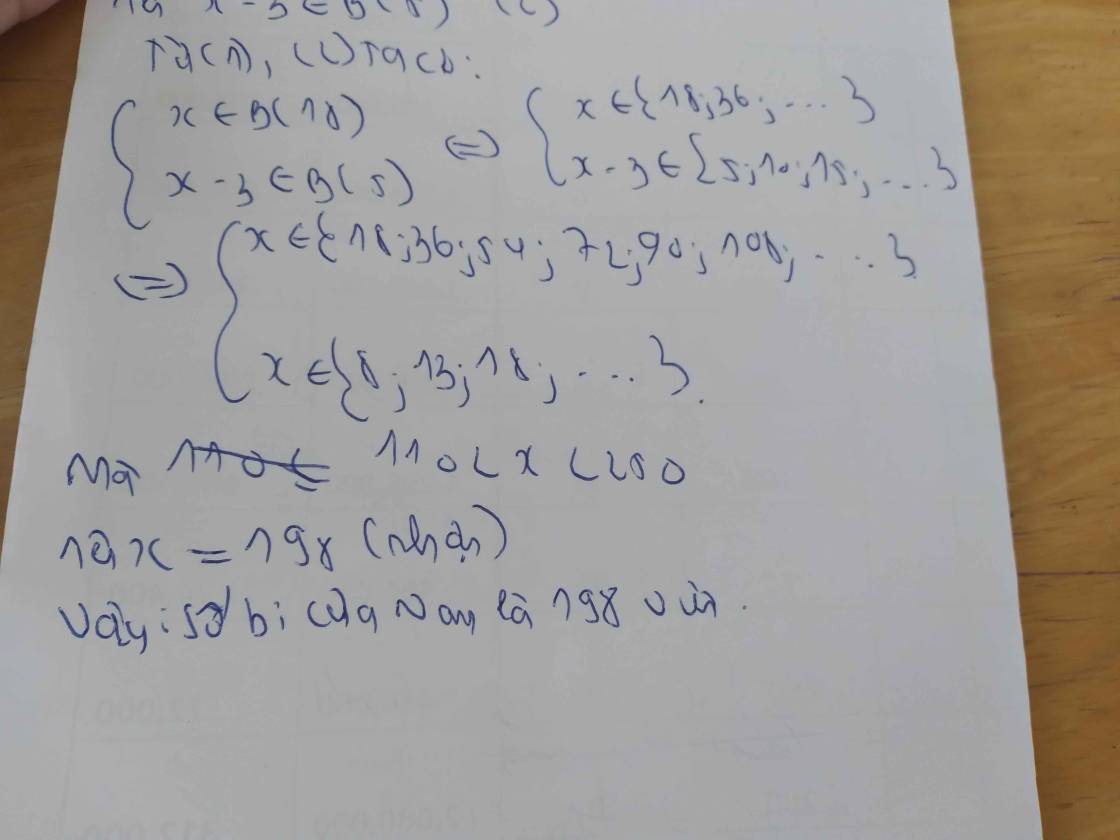 và x - 3 ∈ B(5) (2)
Từ (1), (2) Ta có:
{ x ∈ B(18) ⇔ { x ∈ {18; 36; .... }
{ x - 3 ∈ B(5) { x - 3 ∈ {5; 10; 15; ....}
⇔ { x ∈ {18; 36; 54; 72; 90; 108; .... }
{ x ∈ {8; 13; 18; .... }.
Mà 110 < x < 250
và x = 198 (nhận)
Vậy: số bi của Nam là 198 viên.